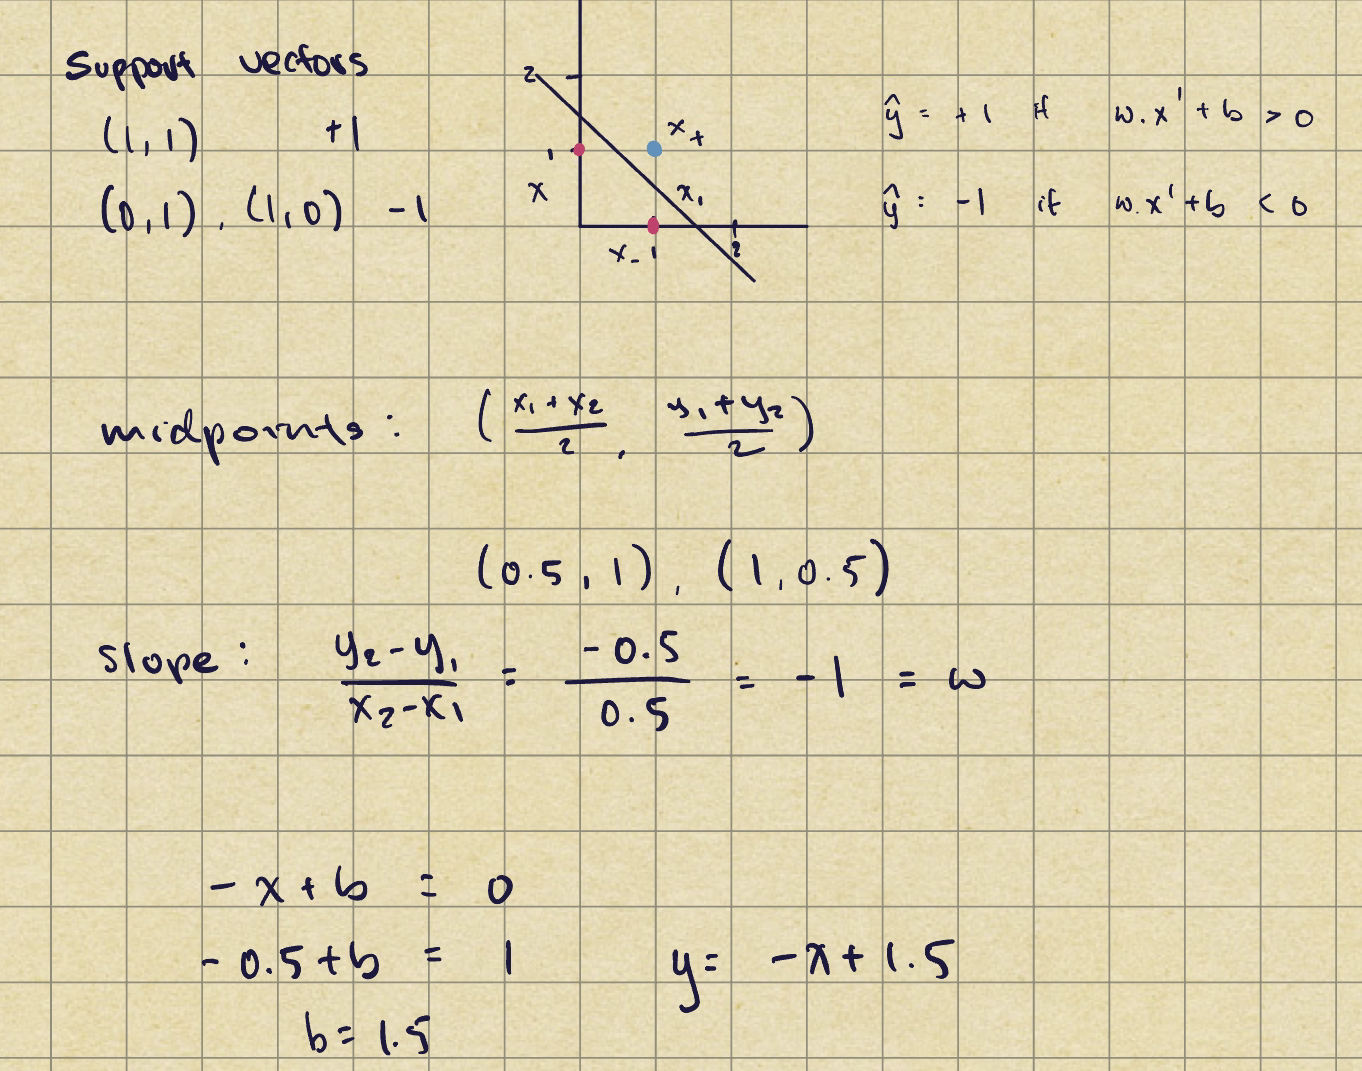 Support vectors
(1,1) +1
(0,1), (1,0) -1
2
1
x
x₊
x₁
x₋ 1
2
ŷ = +1 if w.x' + b > 0
ŷ = -1 if w.x' + b < 0
midpoints: ( (x₁ + x₂)/2 , (y₁ + y₂)/2 )
(0.5, 1), (1, 0.5)
slope: (y₂ - y₁)/(x₂ - x₁) = -0.5/0.5 = -1 = w
-x + b = 0
-0.5 + b = 1
b = 1.5
y = -x + 1.5